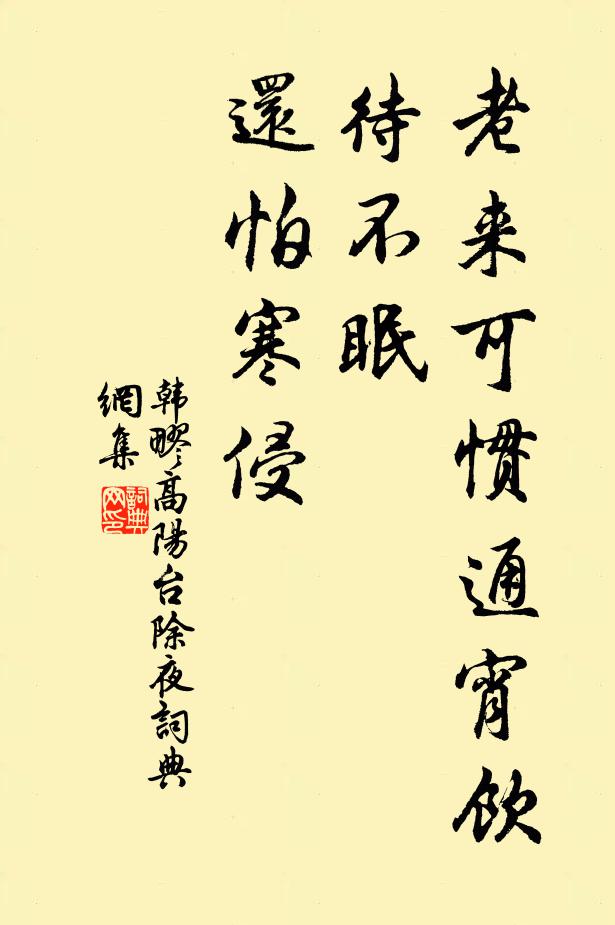 老来可惯通宵飲
待不眠
還怕寒侵
韩疁高陽台除夜詞典
網集
詞典网印